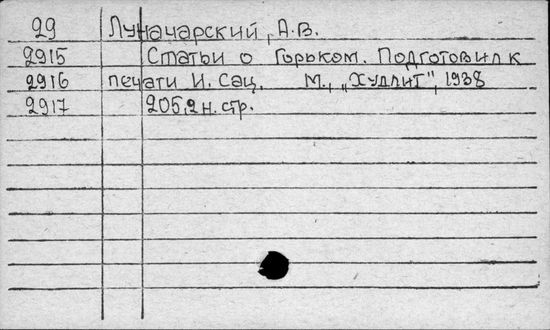 29 Луначарский, А.В.
2915 Статьи о Горьком. Подготовил к
2916 печати И. Сац. М., „Худлит", 1938
2917 205,2 н. стр.